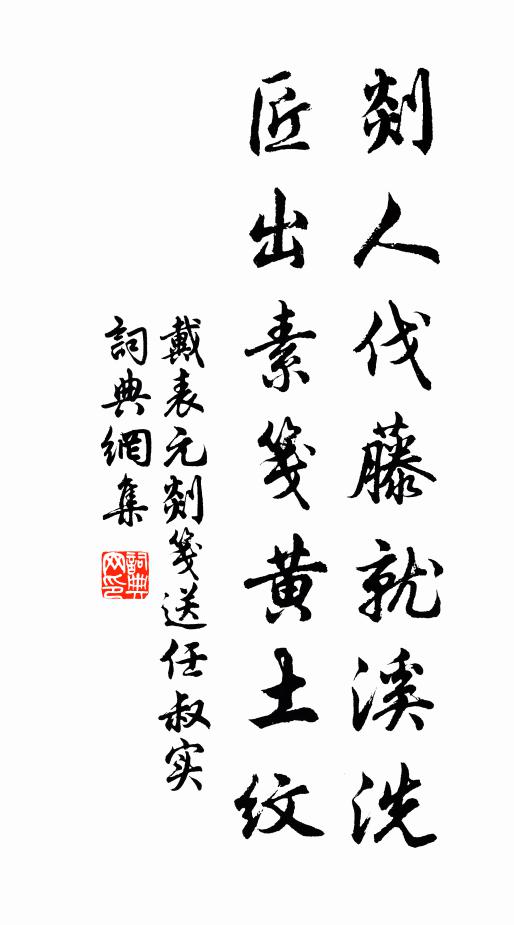 剡人伐藤就溪洗
匠出素箋黃土紋
戴表元剡箋送任叔实
詞典網集
詞典网印